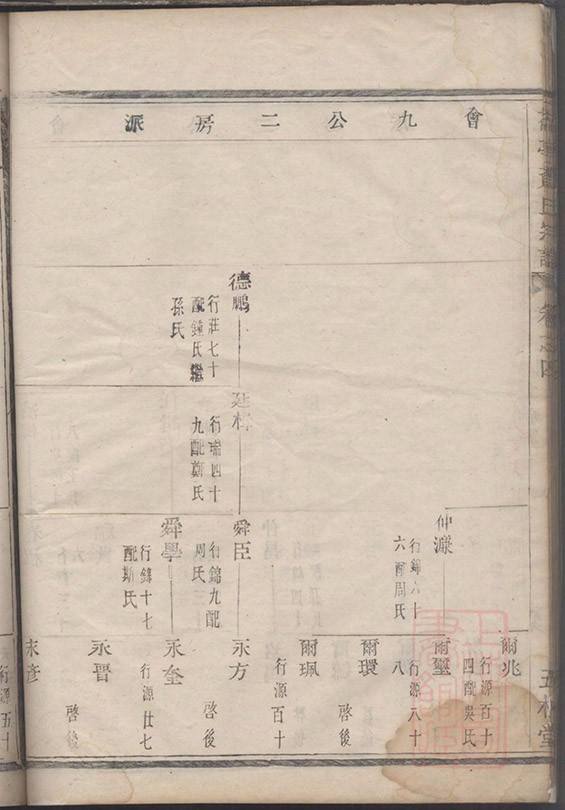 會九公二房派
德鵬
行莊七十
配鍾氏繼
孫氏
廷
行瑞四十
九配鄭氏
仲濂
行錦六十
六配周氏
舜臣
行錦九配
周氏
舜學
行錦十七
配斯氏
爾兆
行源百十
四配吳氏
爾璽
行源八十
八
爾環
啓後
爾珮
行源百十
永方
啓後
永奎
行源廿七
永晋
啓後
永彥
行源五十
氏宗譜
卷之四
五桂堂